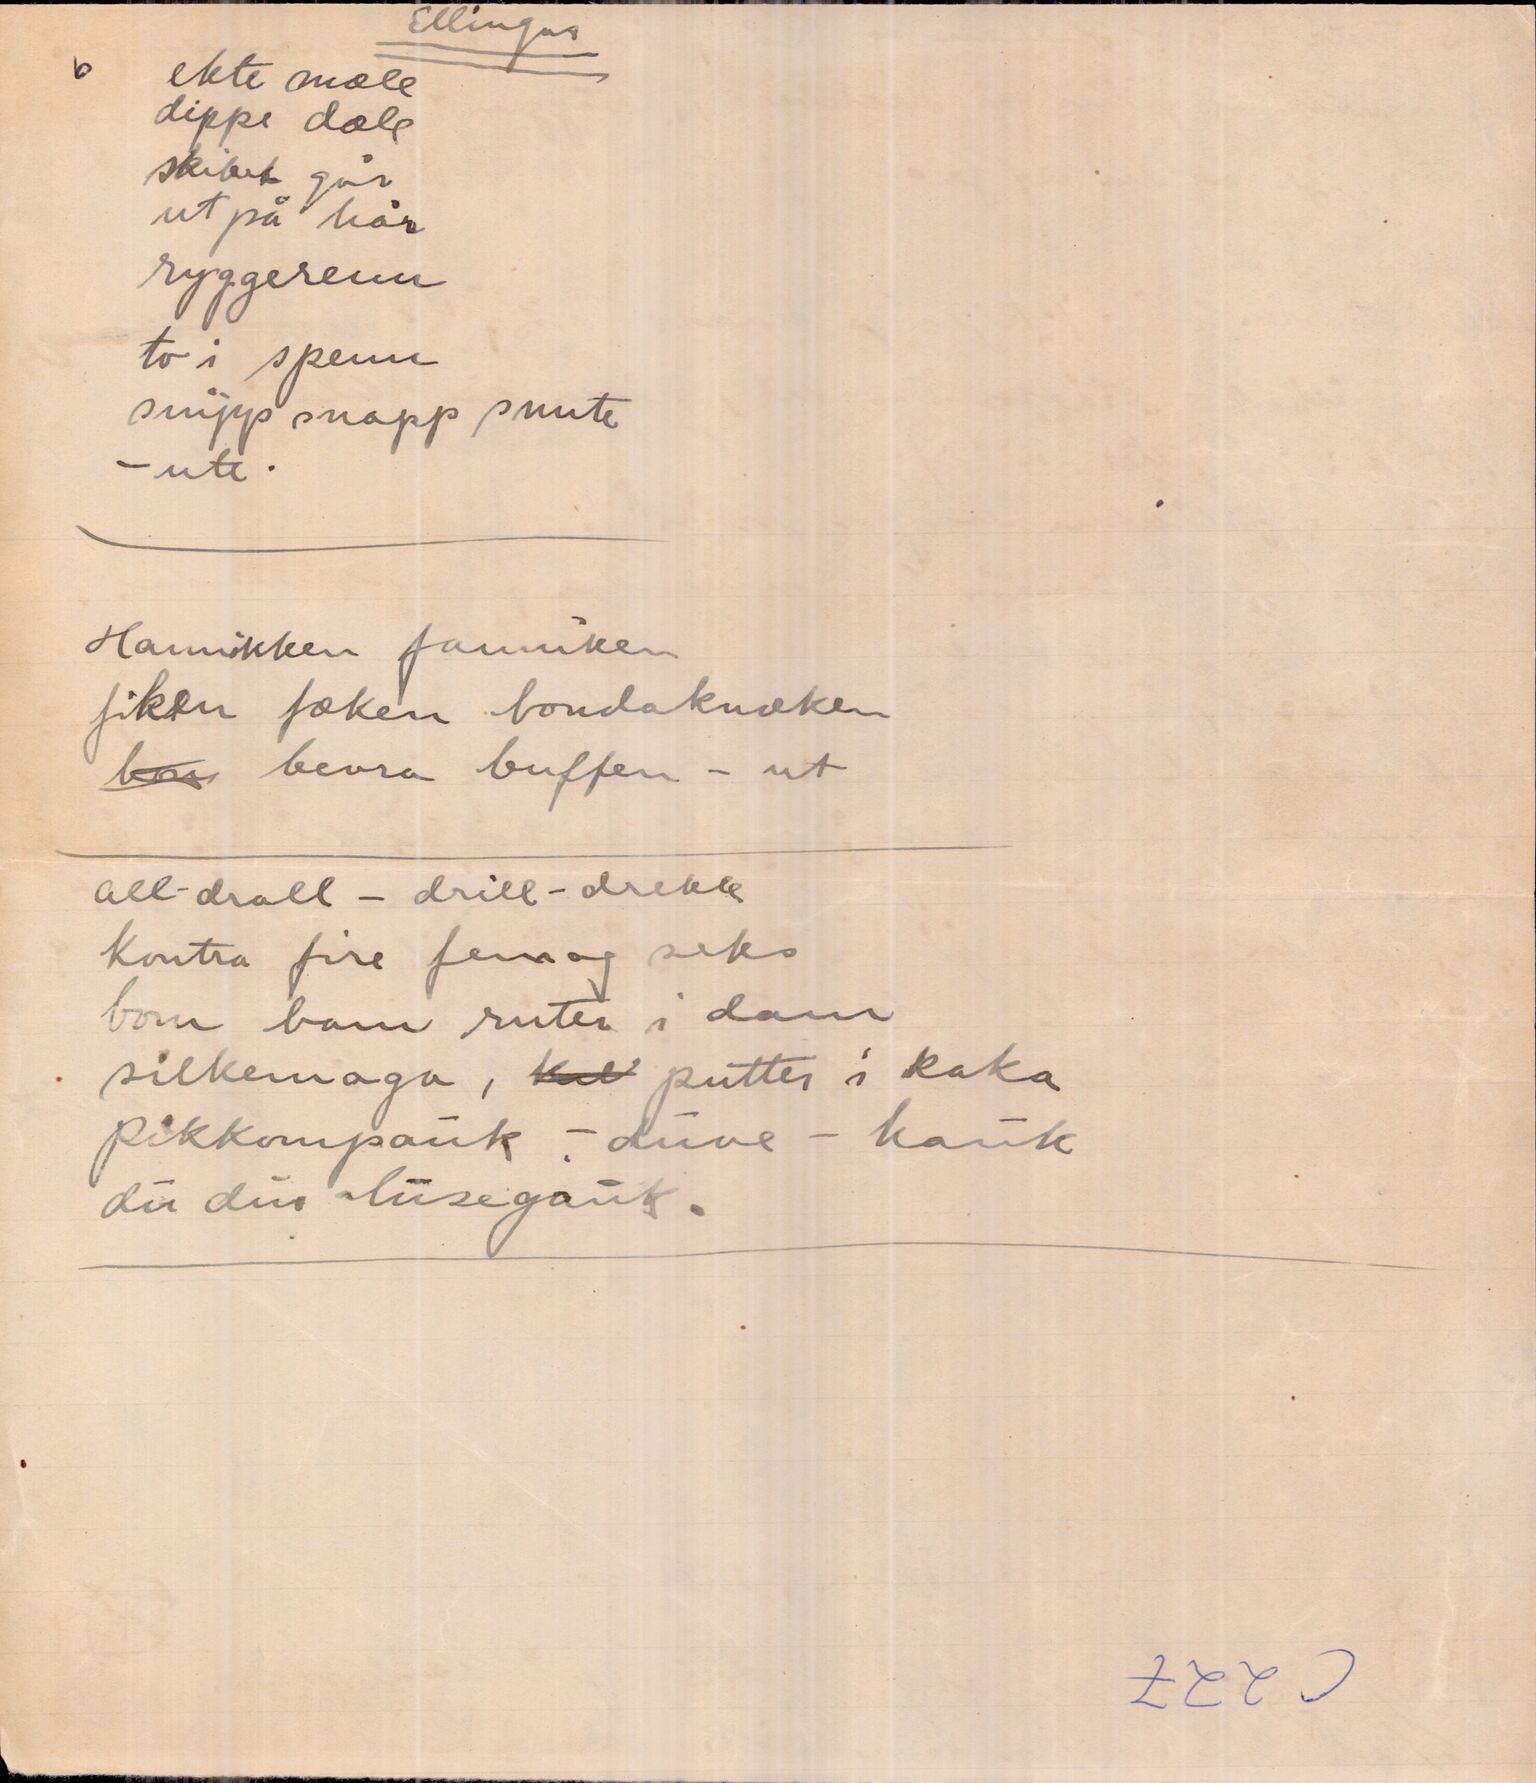 Ellingar
6 ekte mæle
dippe dæle
skibet går
ut på hår
ryggerenn
to i spenn
snipp snapp snute
– ute.
Hannikken fanniken
fiken fæken bondaknæken
bevra buffen – ut
all-drall – drill-drekke
kontra fire fem og seks
bom bam ruter i dam
silkemaga, putter i kaka
Pikkompaŭk – dŭve – haŭk
dŭ dŭs lŭsegaŭk.
C 227